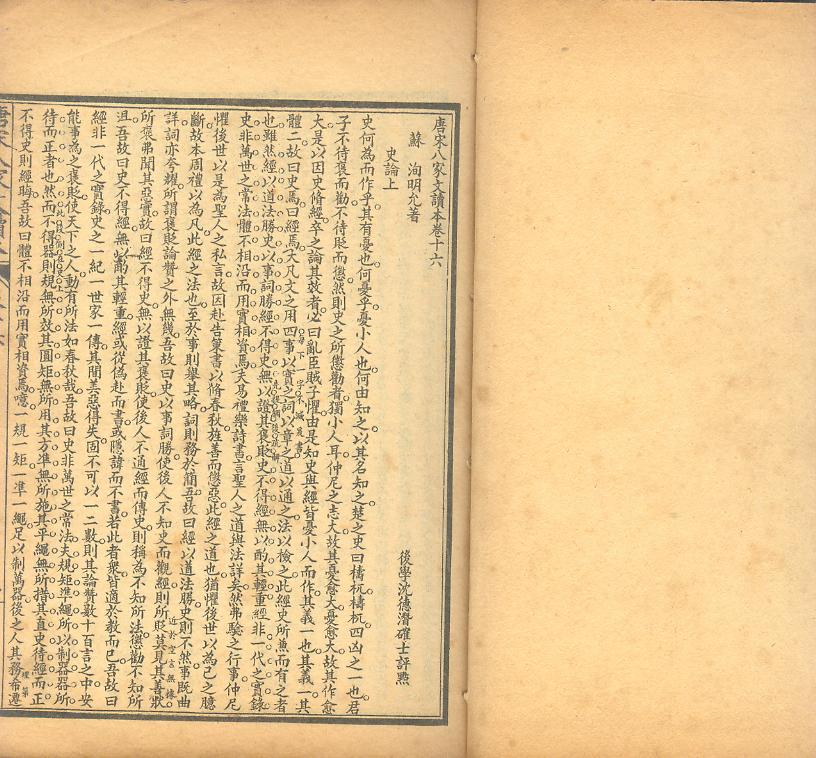 唐宋八家文讀本卷十六
蘇 洵明允著
後學沈德潛確士評點
史論上
史何為而作乎其有憂也何憂乎憂小人也何由知之以其名知之楚之史曰檮杌檮杌四凶之一也君
子不待褒而勸不待貶而懲然則史之所懲勸者獨小人耳仲尼之志大故其憂愈大憂愈大故其作愈
大是以因史脩經卒之論其效者必曰亂臣賊子懼由是知史與經皆憂小人而作其義一也其義一其
體二故曰史焉曰經焉大凡文之用四事以實之詞以章之道以通之法以檢之此經史所兼而有之者
也雖然經以道法勝史以事詞勝經不得史無以證其褒貶史不得經無以酌其輕重經非一代之實錄
史非萬世之常法體不相沿而用實相資焉夫易禮樂詩書言聖人之道與法詳矣然弗驗之行事仲尼
懼後世以是為聖人之私言故因赴告策書以脩春秋旌善而懲惡此經之道也猶懼後世以為己之臆
斷故本周禮以為凡此經之法也至於事則舉其略詞則務於簡吾故曰經以道法勝史則不然事既曲
詳詞亦夸耀所謂褒貶論贊之外無幾吾故曰史以事詞勝使後人不知史而觀經則所貶莫見其善狀
近於空言無據
所褒弗聞其惡實故曰經不得史無以證其褒貶使後人不通經而傳史則稱為不知所法懲勸不知所
沮吾故曰史不得經無以酌其輕重經或從偽赴而書或隱諱而不書若此者眾皆適於教而已吾故曰
經非一代之實錄史之一紀一世家一傳其閒美惡得失固不可以一二數則其論贊數十百言之中安
能事為之褒貶使天下之人動有所法如春秋哉吾故曰史非萬世之常法夫規矩準繩所以制器器所
待而正者也然而不得器則規無所效其圓矩無所用其方準無所施其平繩無所措其直史待經而正
不得史則經晦吾故曰體不相沿而用實相資焉噫一規一矩一準一繩足以制萬器後之人其務希遷